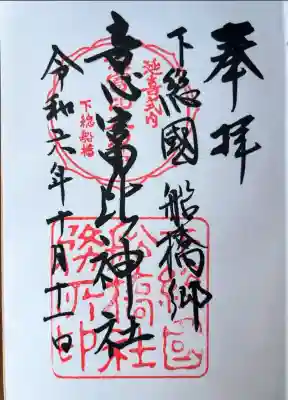 奉拝
下総國 船橋郷
意富比神社
令和六年十月十一日
延喜式内
下総船橋